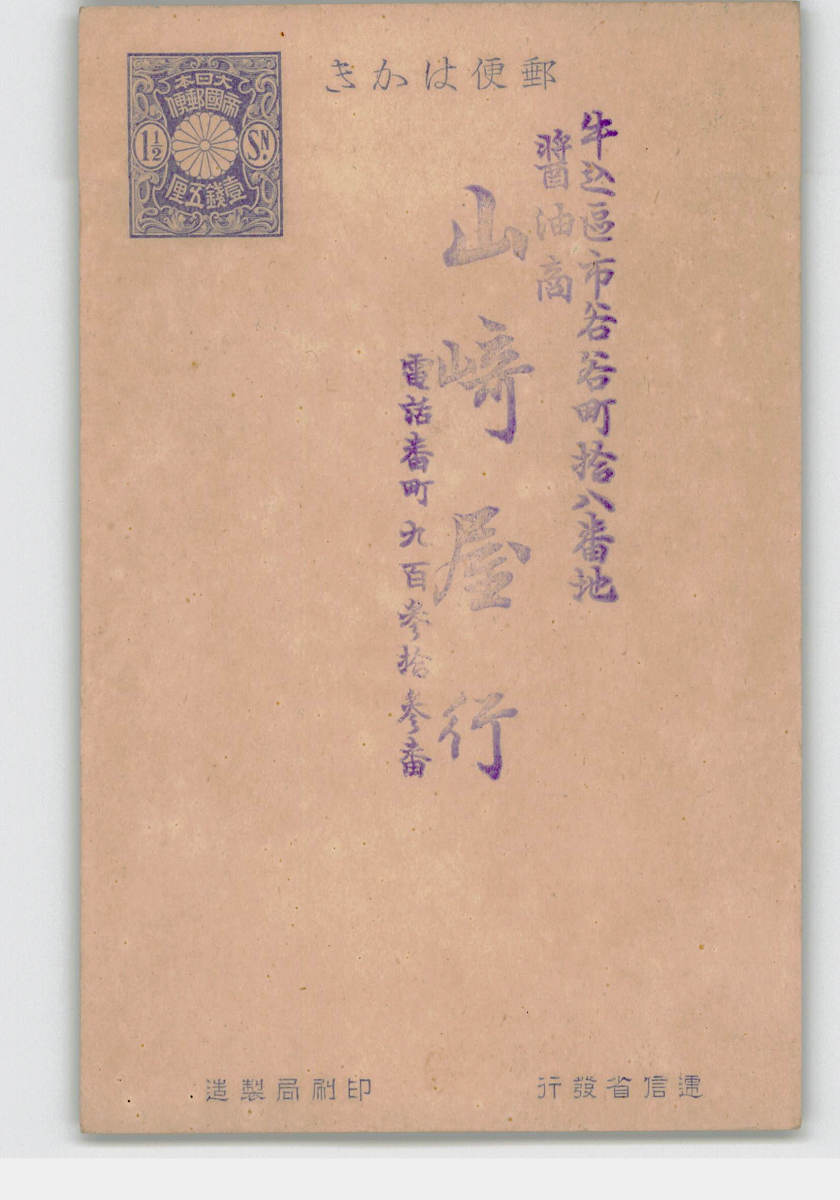 郵便はかき
大日本
帝國郵便
1½
SN.
壹錢五厘
牛込區市谷谷町拾八番地
醤油商
山崎屋行
電話番町九百參拾參番
逓信省發行
印刷局製造